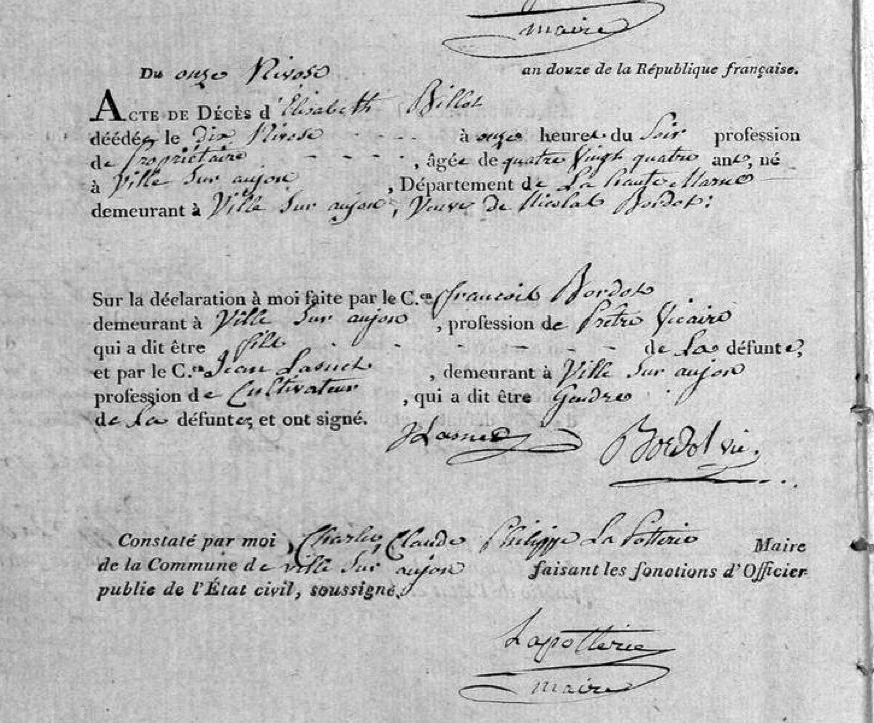 maire
Du onze Nivose an douze de la République française.
ACTE DE DÉCÈS d'Elisabeth Billot
déédée, le Dix Nivose - - - - à onze heures du Soir profession
de propriétaire - - - - - , âgée de quatre Vingt quatre ans, né
à Ville Sur aujon , Département de La haute Marne
demeurant à Ville Sur aujon, Veuve de Nicolas Bordot:
Sur la déclaration à moi faite par le C.en françois Bordot
demeurant à Ville Sur aujon , profession de Prêtre Vicaire
qui a dit être fils - - - - - - - - de La défunte,
et par le C.en Jean Lasnet , demeurant à Ville Sur aujon
profession de Cultivateur , qui a dit être Gendre
de La défunte, et ont signé.
JLasnet Bordot vic.
Constaté par moi Charles Claude Philippe La Potterie Maire
de la Commune de ville Sur aujon faisant les fonctions d'Officier
public de l'État civil, soussigné.
Lapotterie
maire